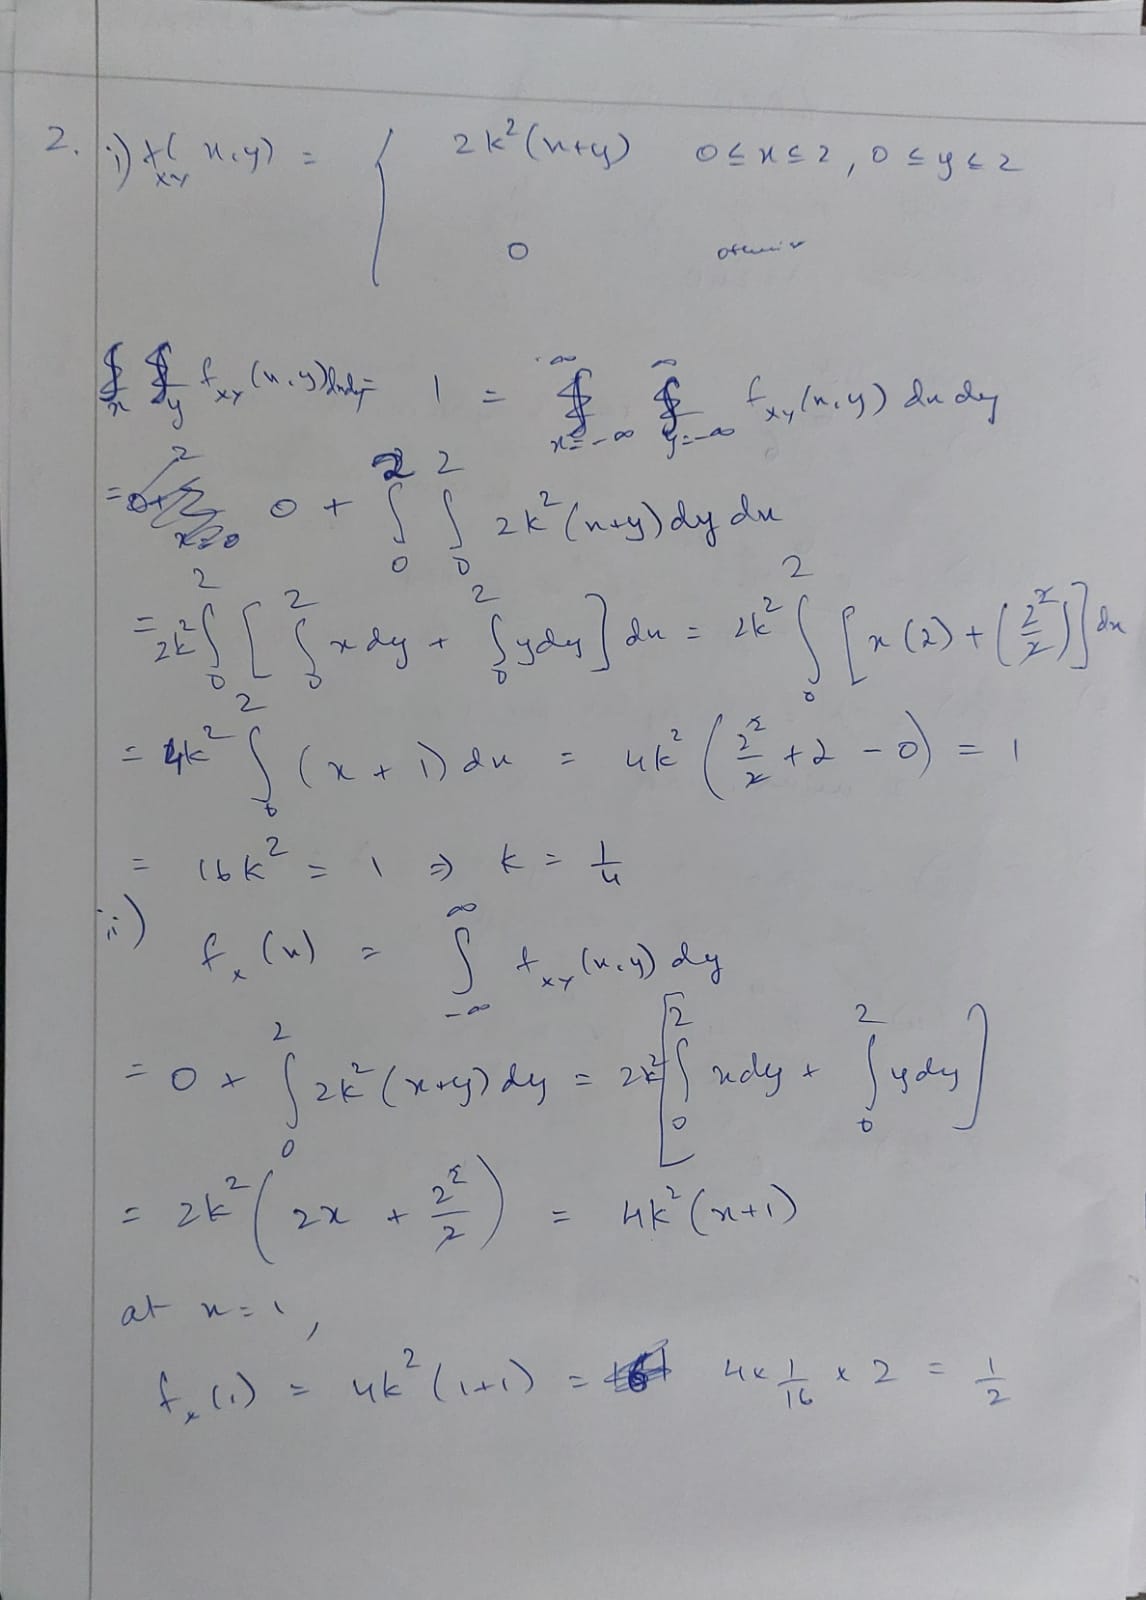 2. i) f_XY(x,y) = { 2k²(x+y) 0≤x≤2, 0≤y≤2
0
∫_x ∫_y f_XY(x,y)dxdy = 1 = ∫_{x=-∞}^{∞} ∫_{y=-∞}^{∞} f_XY(x,y) dx dy
= 0 + ∫_0^2 ∫_0^2 2k²(x+y) dy dx
= 2k² ∫_0^2 [ ∫_0^2 x dy + ∫_0^2 y dy ] dx = 2k² ∫_0^2 [ x(2) + (2²/2) ] dx
= 4k² ∫_0^2 (x + 1) dx = 4k² ( 2²/2 + 2 - 0 ) = 1
= 16k² = 1 ⇒ k = 1/4
ii) f_X(x) = ∫_{-∞}^{∞} f_XY(x,y) dy
= 0 + ∫_0^2 2k²(x+y) dy = 2k² [ ∫_0^2 x dy + ∫_0^2 y dy ]
= 2k² ( 2x + 2²/2 ) = 4k²(x+1)
at x = 1,
f_X(1) = 4k²(1+1) = 4 × 1/16 × 2 = 1/2